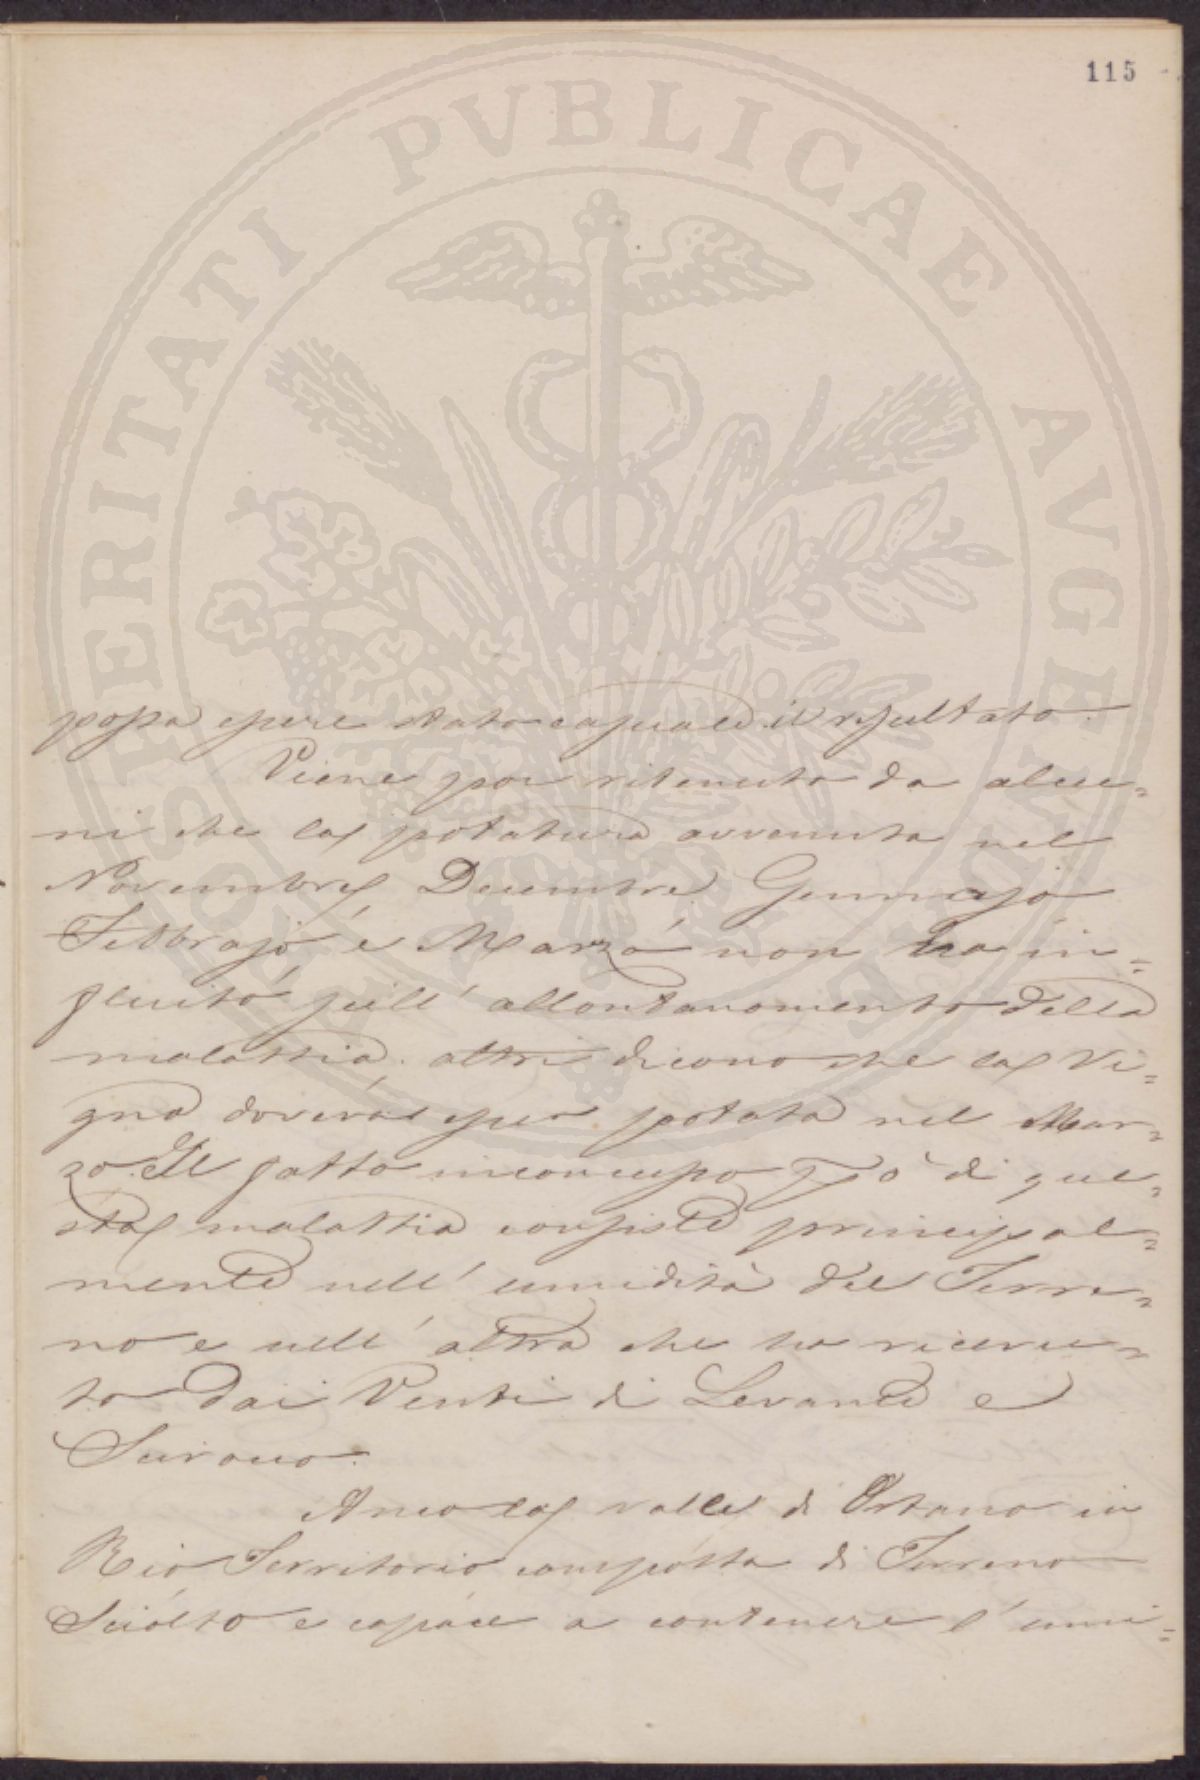 115
PROSPERITATI PVBLICAE AVGENDAE
possa essere stato casuale il risultato.
Viene poi ritenuto da alcu=
ni che la potatura avvenuta nel
Novembre, Decembre, Gennajo
Febbrajo e Marzo non ha in=
fluito sull' allontanamento della
malattia. altri dicono che la Vi=
gna doverà esser potata nel Mar=
zo. Il fatto inconcusso però di que=
sta malattia consiste principal=
mente nell' umidità del Terre=
no e nell' altra che ha ricevu=
to dai Venti di Levante e
Scirocco.
Anco la valle di Ortano in
Rio Territorio composta di Terreno
Sciolto e capace a contenere l' umi=